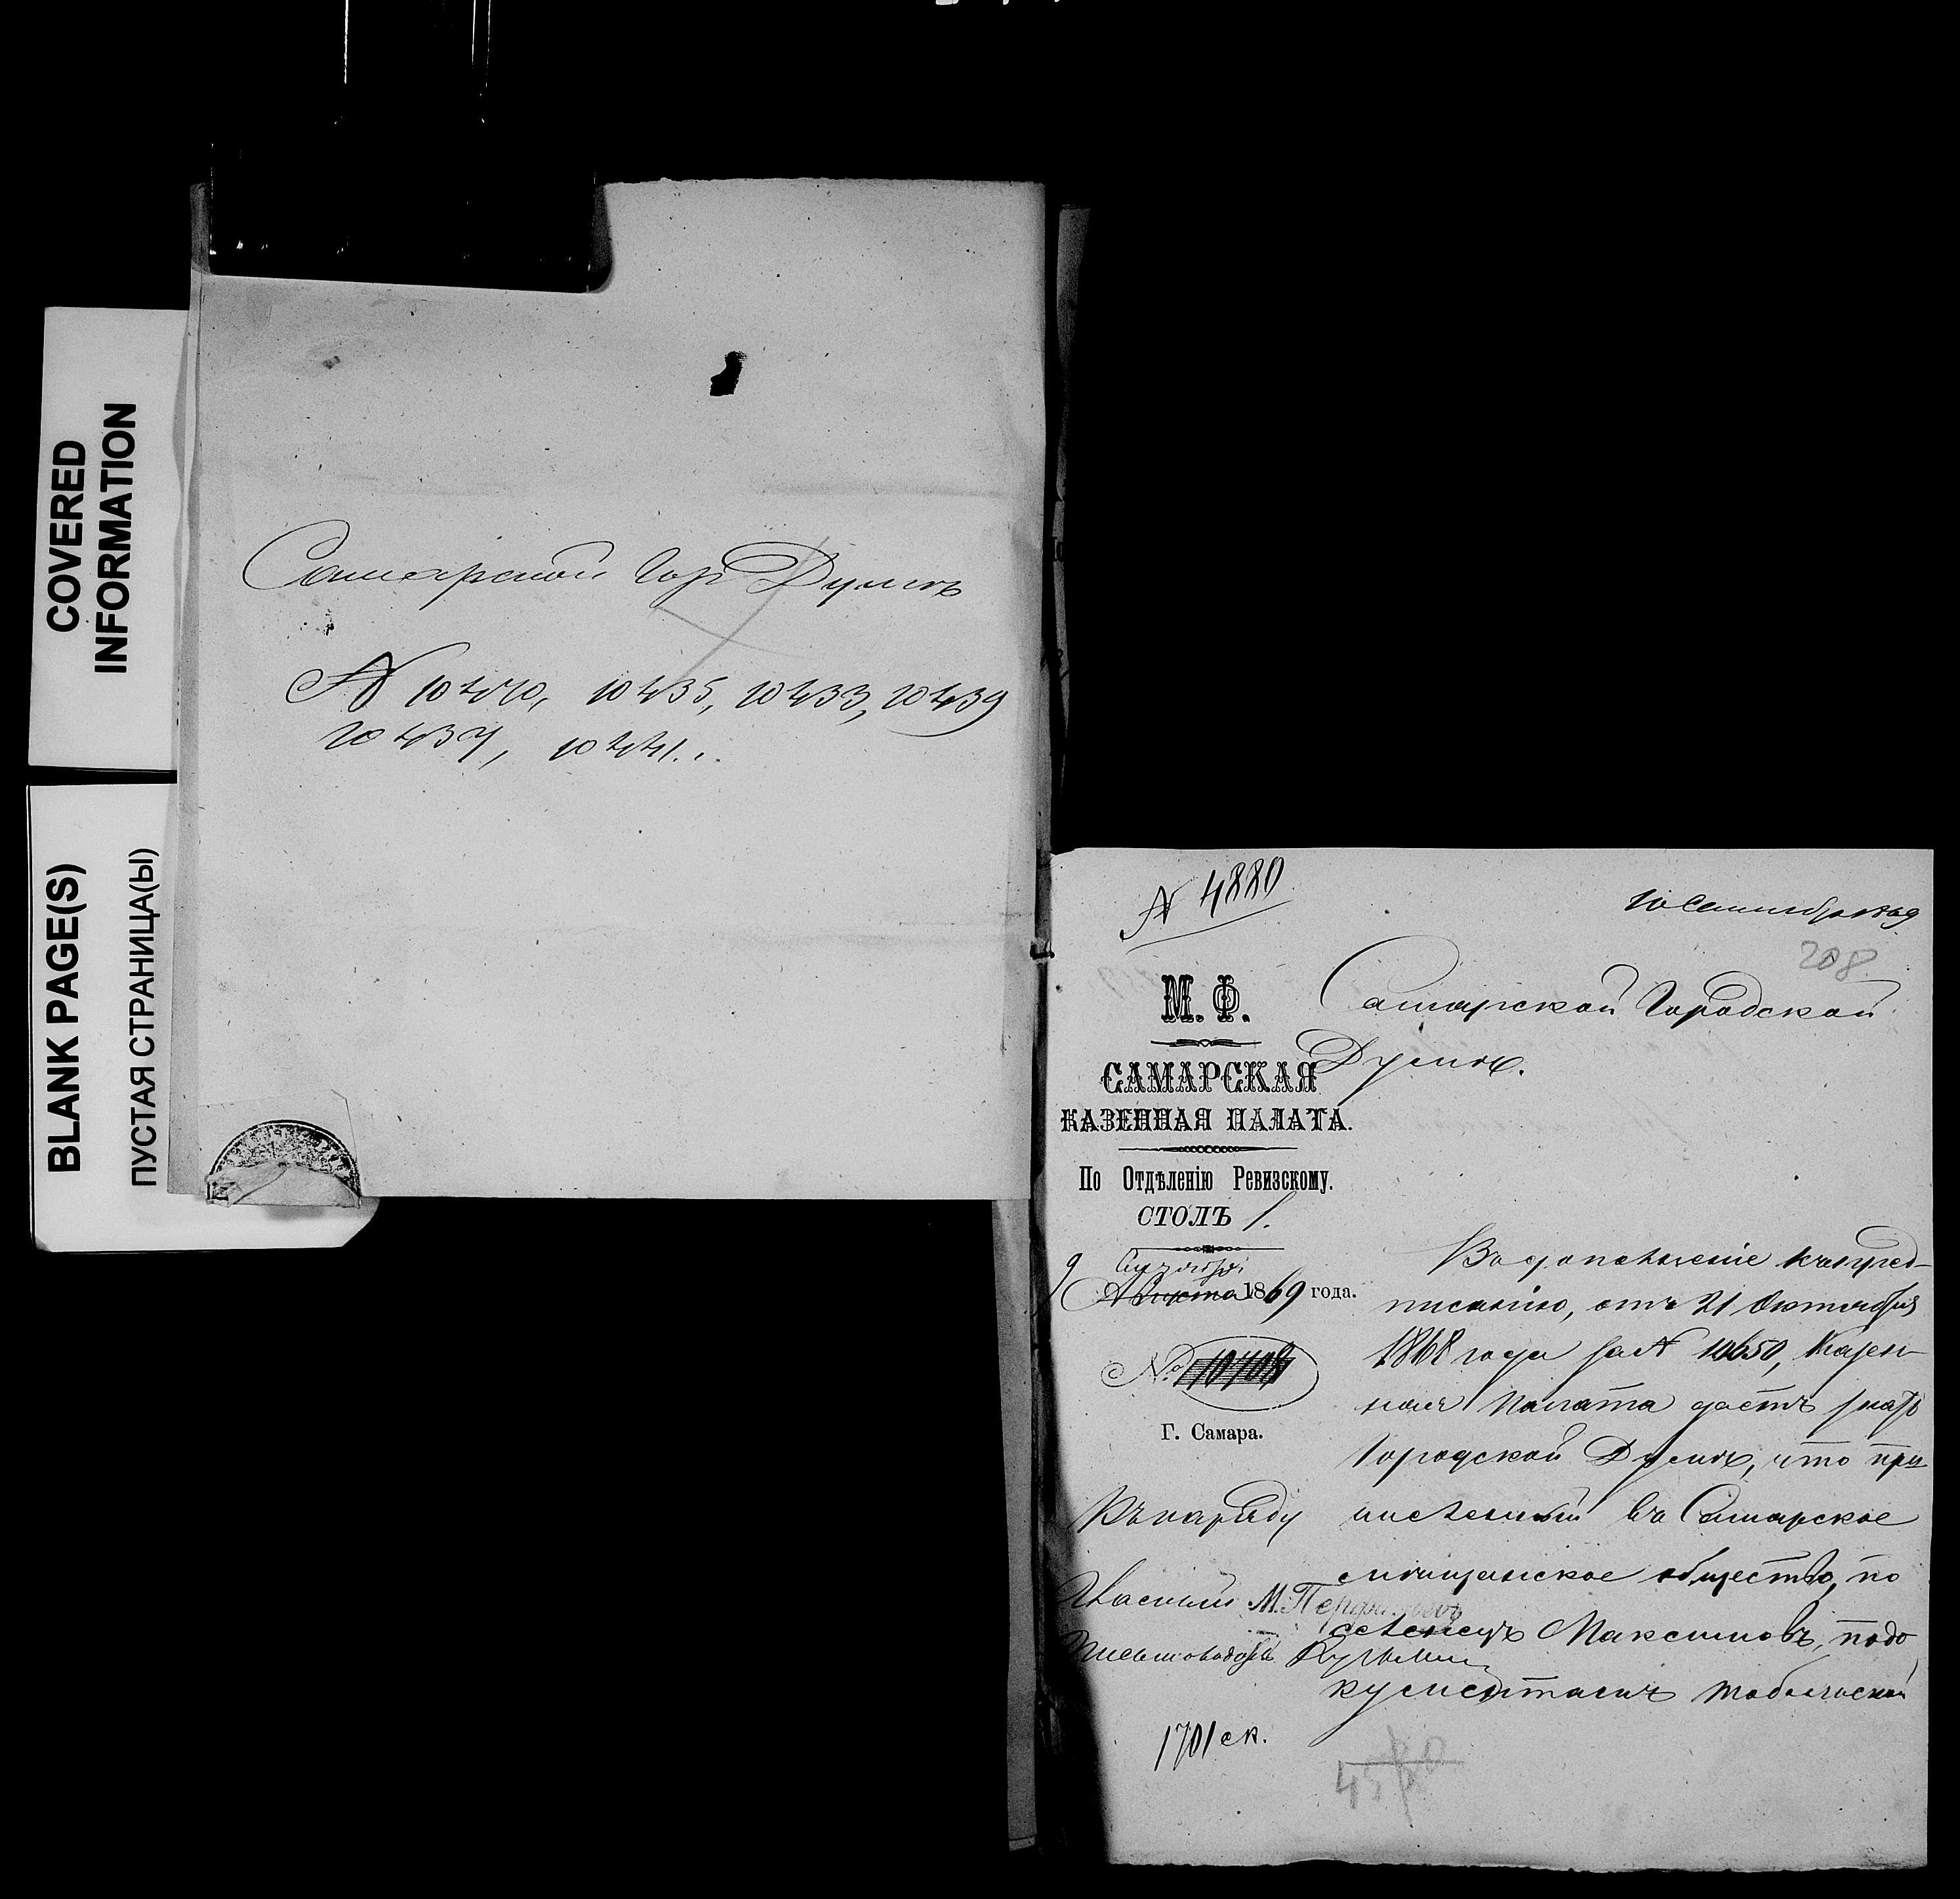 COVERED
INFORMATION
BLANK PAGE(S)
ПУСТАЯ СТРАНИЦА(Ы)
Самарской Гор Думѣ
№ 10440, 10435, 10433, 10439
10437, 10441.
№ 4880
10 Сентября 1869
208
М. Ф.
САМАРСКАЯ
КАЗЕННАЯ ПАЛАТА.
По Отдѣленію Ревизскому.
СТОЛЪ 1.
9 Сентября
Августа 1869 года.
№
Г. Самара.
Къ наряду
М. Перфильевъ
Кузьмин
1701 ск.
Самарской Городской
Думѣ.
Въ дополненіе къ пред-
писанію, отъ 21 Октября
1868 года за № 10650, Казен-
ная Палата даетъ знать
Городской Думѣ, что при
численный въ Самарское
мѣщанское общество, по
селенецъ Максимовъ, по до
кументамъ Тобольской